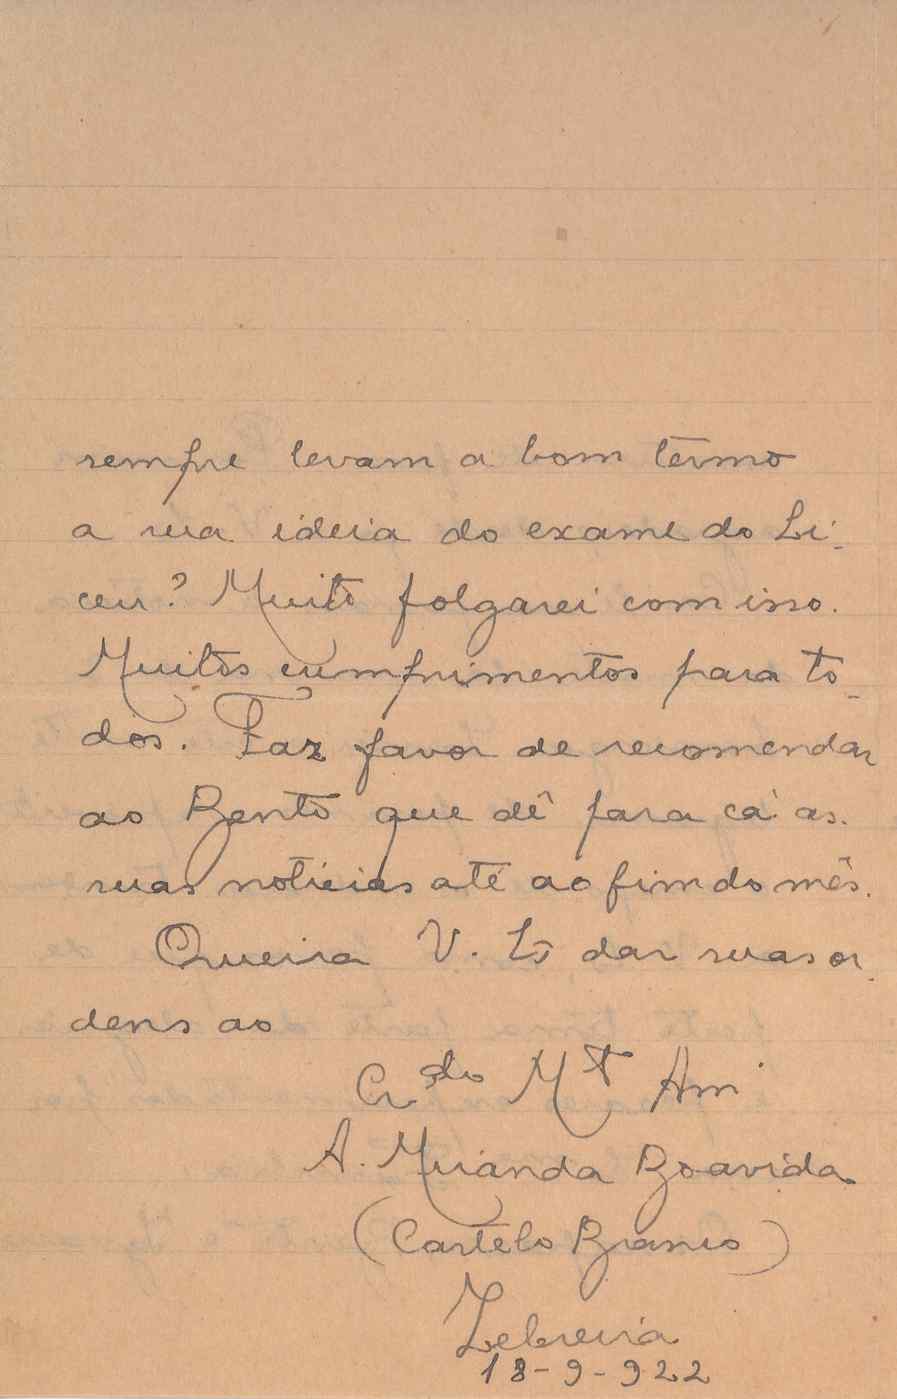 sempre levam a bom termo
a sua ideia do exame do Li-
ceu? Muito folgarei com isso.
Muitos cumprimentos para to-
dos. Faz favor de recomendar
ao Bento que dê para cá as
suas noticias até ao fim do mês.
Queira V. dar suas or
dens ao
Cr.do Mt Am.
A. Miranda Boavida
(Castelo Branco)
Zebreira
18-9-922